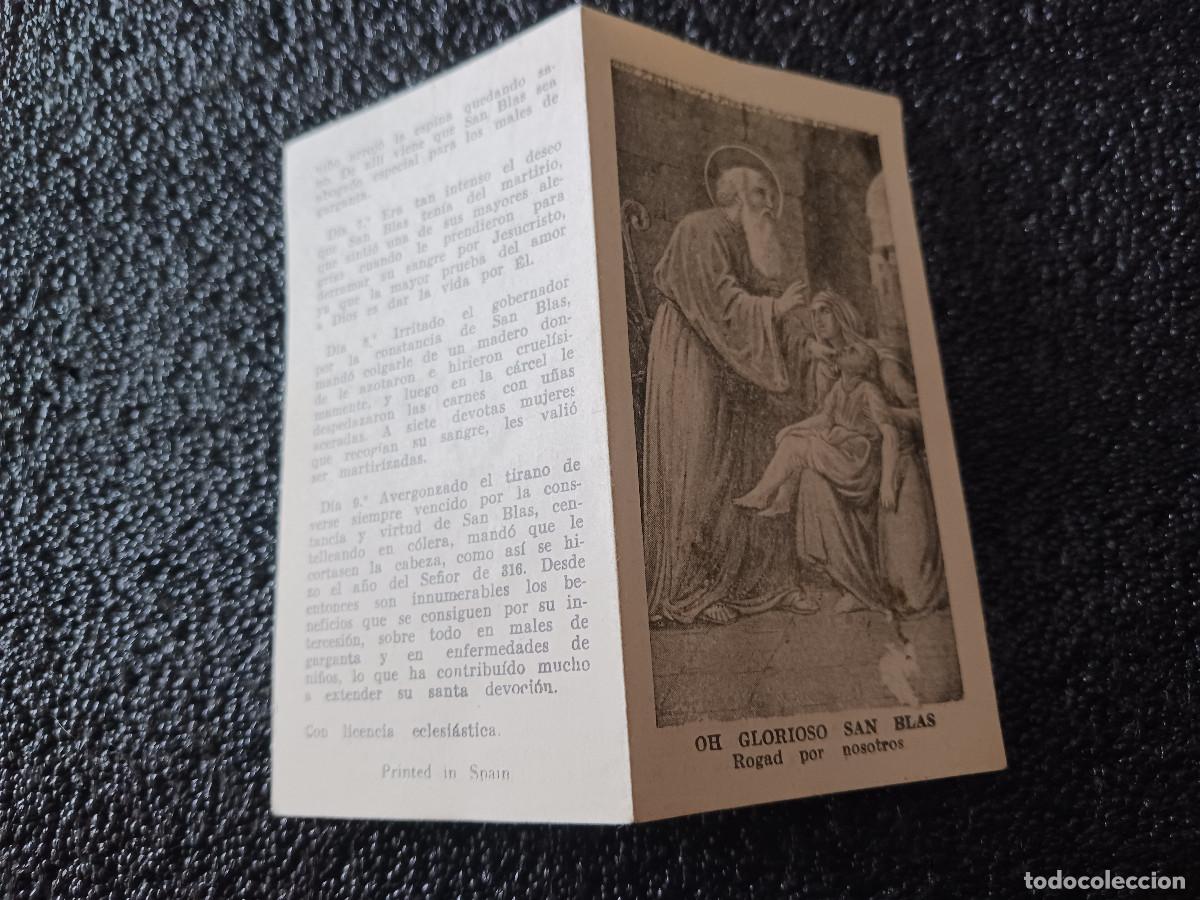 niño arrojó la espina quedando sa-
no. De allí viene que San Blas sea
abogado especial para los males de
garganta.
Día 7.º Era tan intenso el deseo
que San Blas tenía del martirio,
que sintió una de sus mayores ale-
grías cuando le prendieron para
derramar su sangre por Jesucristo,
ya que la mayor prueba del amor
a Dios es dar la vida por Él.
Día 8.º Irritado el gobernador
por la constancia de San Blas,
mandó colgarle de un madero don-
de le azotaron e hirieron cruelísi-
mamente, y luego en la cárcel le
despedazaron las carnes con uñas
aceradas. A siete devotas mujeres
que recogían su sangre, les valió
ser martirizadas.
Día 9.º Avergonzado el tirano de
verse siempre vencido por la cons-
tancia y virtud de San Blas, cen-
telleando en cólera, mandó que le
cortasen la cabeza, como así se hi-
zo el año del Señor de 316. Desde
entonces son innumerables los be-
neficios que se consiguen por su in-
tercesión, sobre todo en males de
garganta y en enfermedades de
niños, lo que ha contribuído mucho
a extender su santa devoción.
Con licencia eclesiástica.
Printed in Spain
OH GLORIOSO SAN BLAS
Rogad por nosotros
todocoleccion